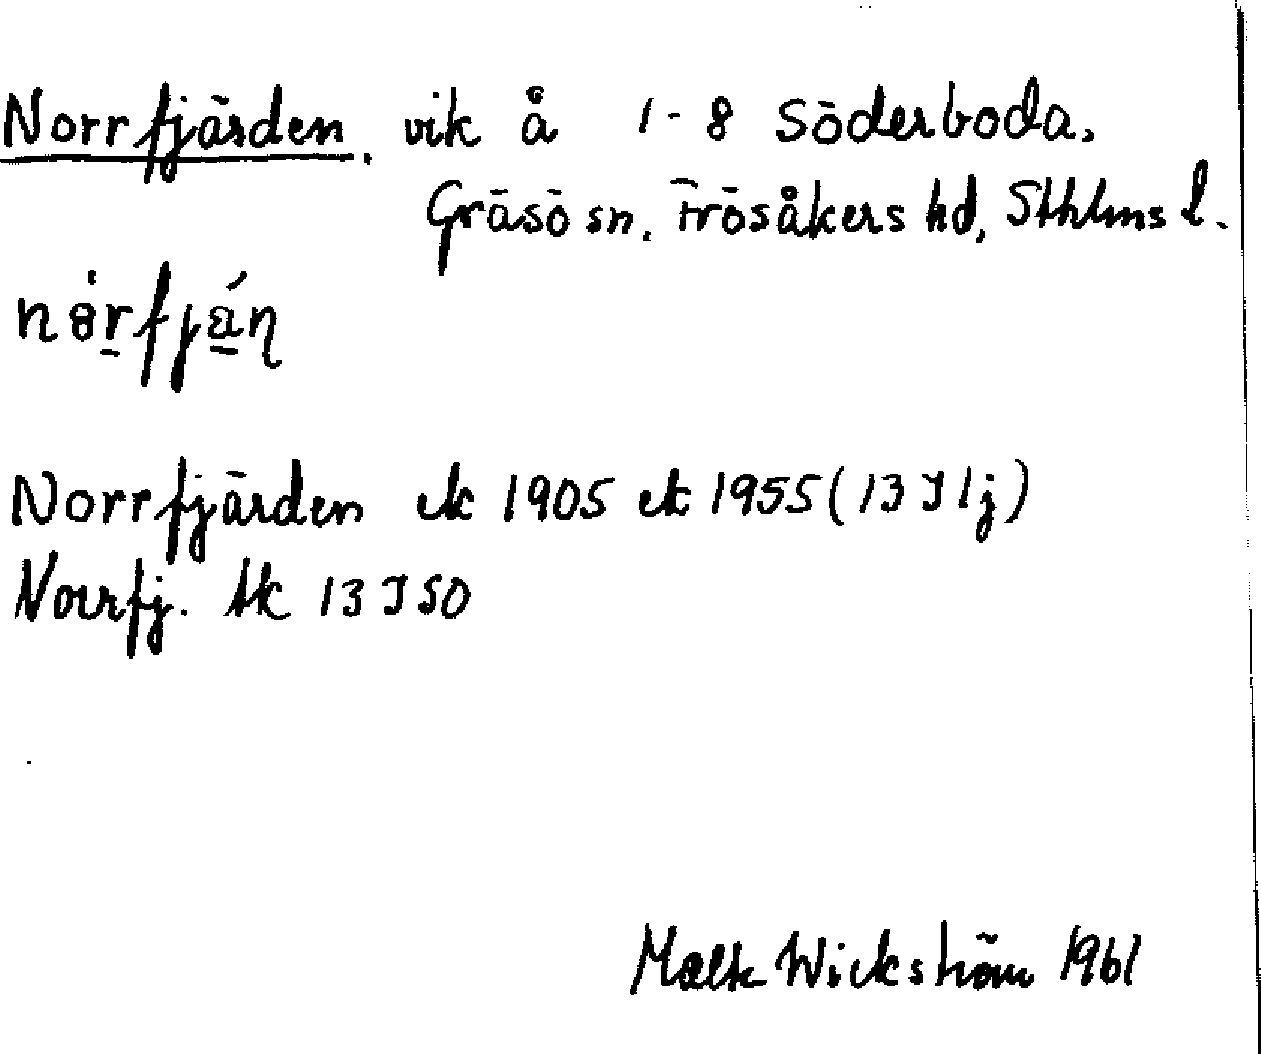 Norrfjärden, vik å 1-8 Söderboda,
Gräsö sn. Frösåkers hd, Sthlms l.
Norrfjärden ek 1905 ek 1955 (13 I 1j)
Norrfj. tk 13 I SO
Wickström 1961